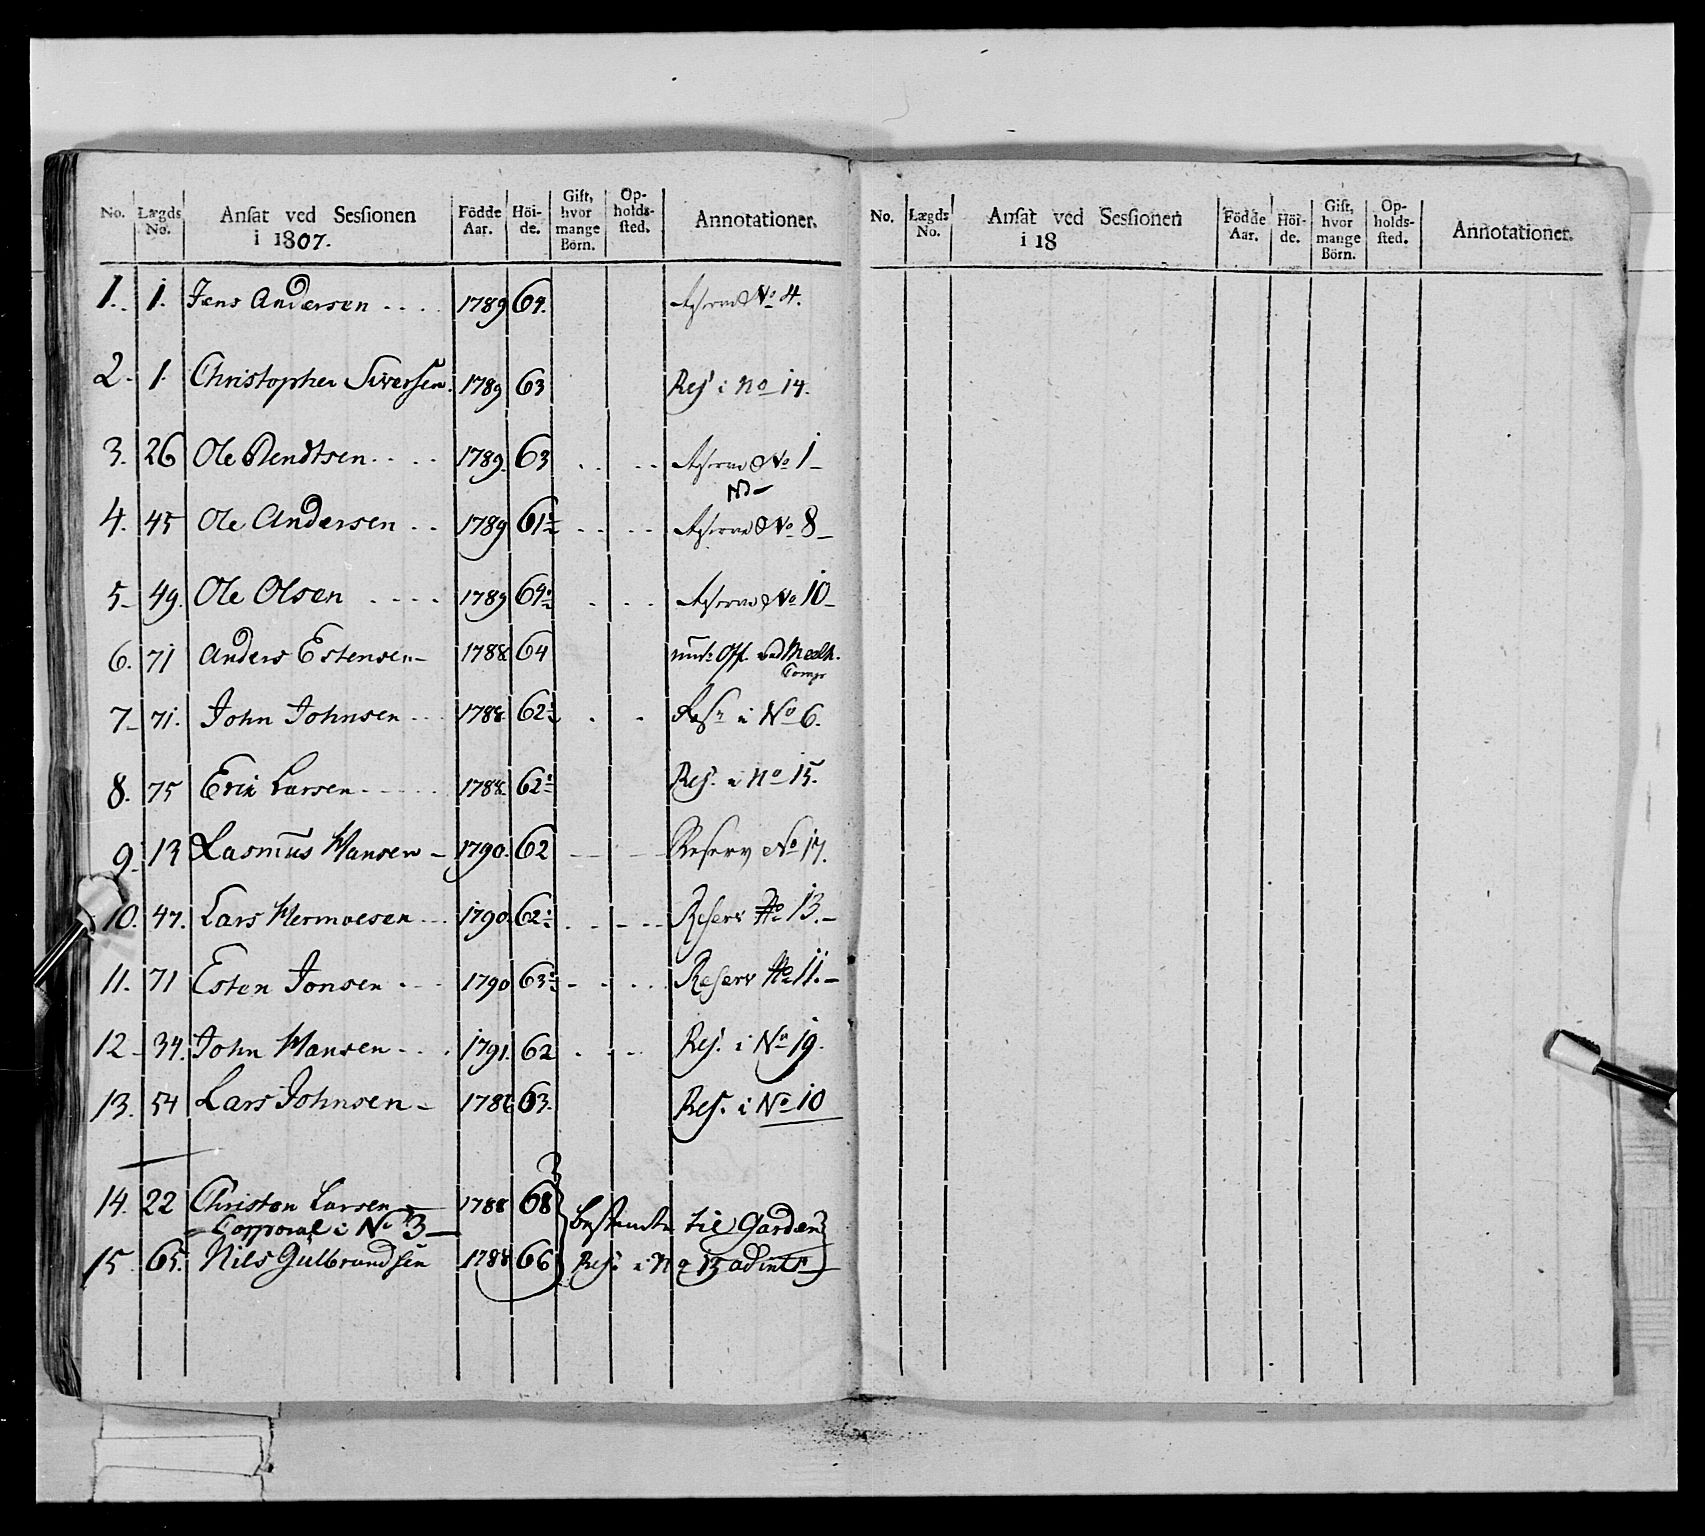 No. Lægds No. Ansat ved Sessionen i 1807. Födde Aar. Höi-de. Gift, hvor mange Börn. Op-holds-sted. Annotationer.
1. 1. Jens Andersen 1789 64. No 4.
2. 1. Christopher Siversen. 1789 63 Res i No 14.
3. 26 Ole Bendtsen 1789. 63 No 1
4. 45 Ole Andersen 1789 61½ No 8
5. 49. Ole Olsen 1789 64½ No 10
6. 71 Anders Estensen 1788 64 Off. ved
Comp
7 71. John Johnsen 1788 62½ Res i No 6.
8. 75 Erik Larsen 1788. 62½ Res. i No 15.
9 13 Rasmus Hansen 1790. 62 Reserv No 17.
10. 47. Lars Hermoesen 1790. 62½ Reserv No 13.
11. 71 Esten Jonsen 1790 63½ Reserv No 11.
12 34. John Hansen 1791. 62 Res. i No 19.
13. 54 Lars Johnsen 1786 63. Res. i No 10
14. 22 Christen Larsen 1788 68
Corporal i No 3 bestemte til Garden
15. 65. Nils Gulbrandsen 1788 66 Res i No 13
No. Lægds No. Ansat ved Sessionen i 18 Födde Aar. Höi-de. Gift, hvor mange Börn. Op-holds-sted. Annotationer.